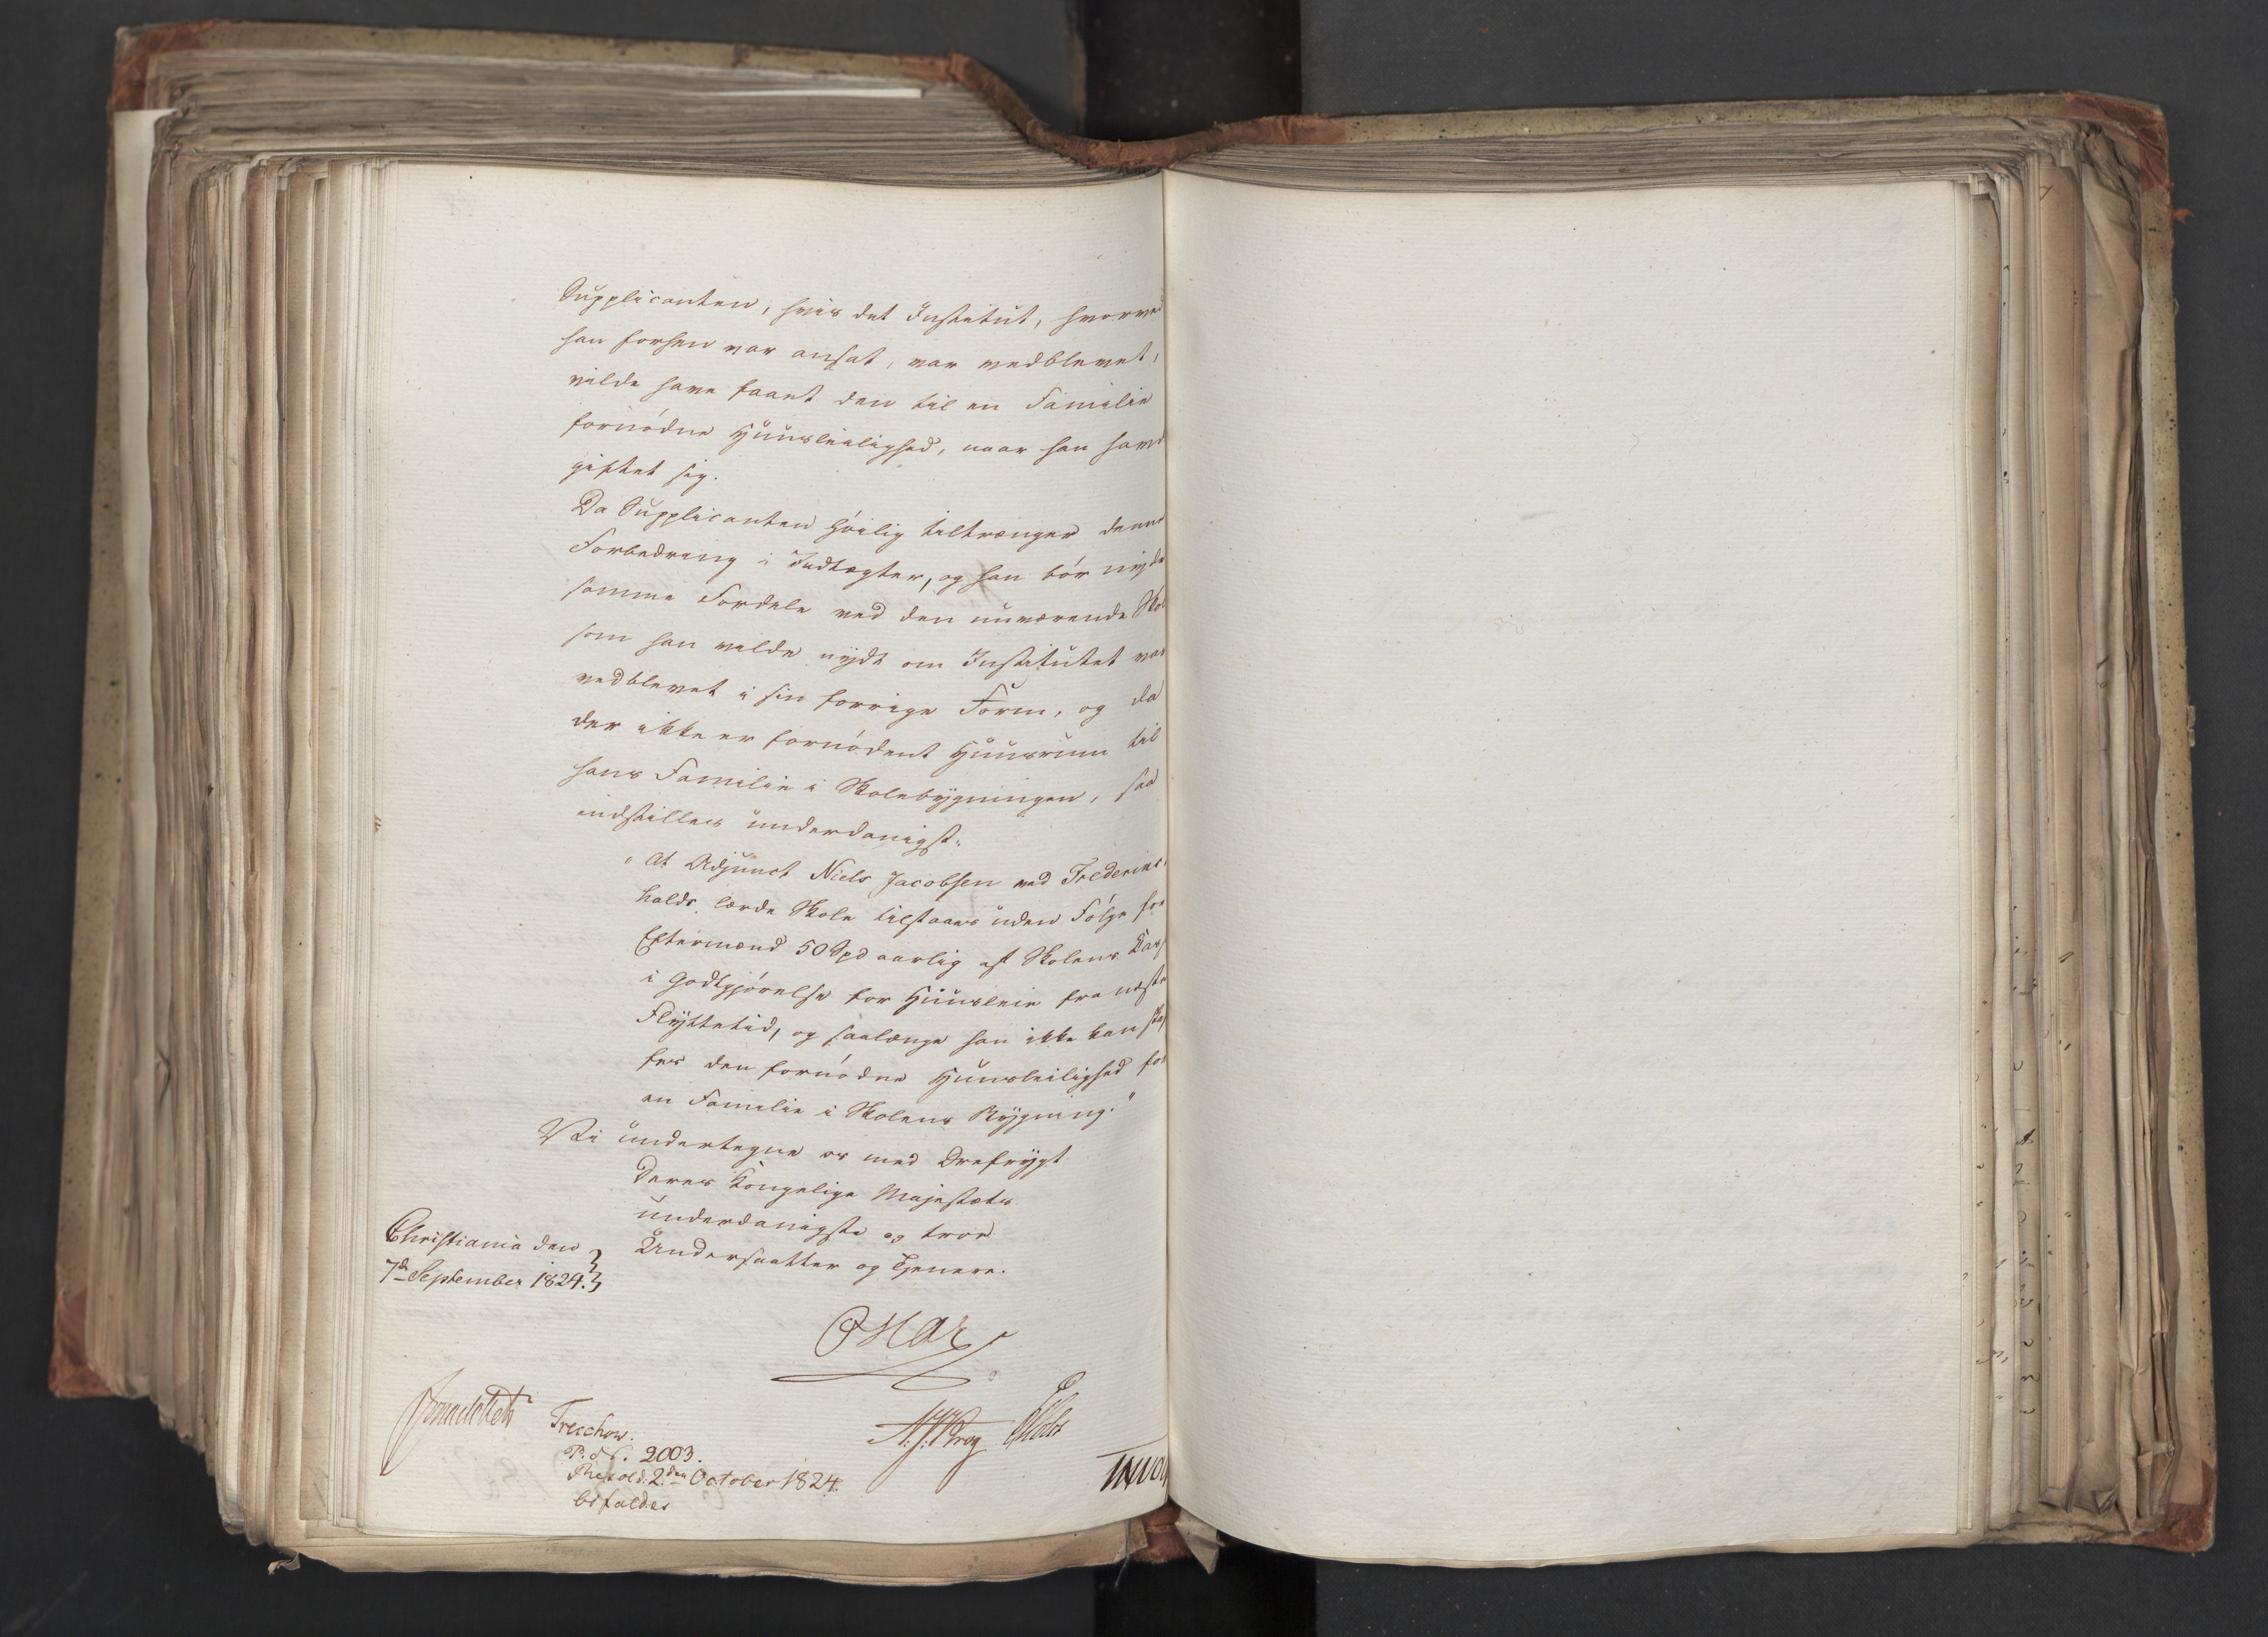 Supplicanten, hvis det Institut, hvorved
han forhen var ansat, var vedblevet,
vilde have faaet den til en Familie
fornødne Huusleilighed, naar han havd
giftet sig.
Da Supplicanten høilig tiltrænger denne
Forbedring i Indtægter, og han bør nyde
samme Fordele ved den nuværende Skol
som han vilde nydt om Institutet var
vedblevet i sin forrige Form, og da
der ikke er fornødent Huusrum til
hans Familie i Skolebygningen, saa
indstilles underdanigst:
"At Adjunct Niels Jacobsen ved Frederiks-
halds lærde Skole tilstaaes uden Følge for
Eftermænd 50 Spd aarlig af Skolens Kas
i Godtgjørelse for Huusleie fra næste
Flyttetid, og saalænge han ikke kan skaf
fes den fornødne Huusleilighed for
en Familie i Skolens Bygning."
Vi undertegne os med Ærefrygt
Deres Kongelige Majestæts
underdanigste og troe
Undersaatter og Tjenere.
Christiania den
7de September 1824.
Oscar
Treschow.
P. d S. 2003.
Resold. 2den October 1824.
bifaldes